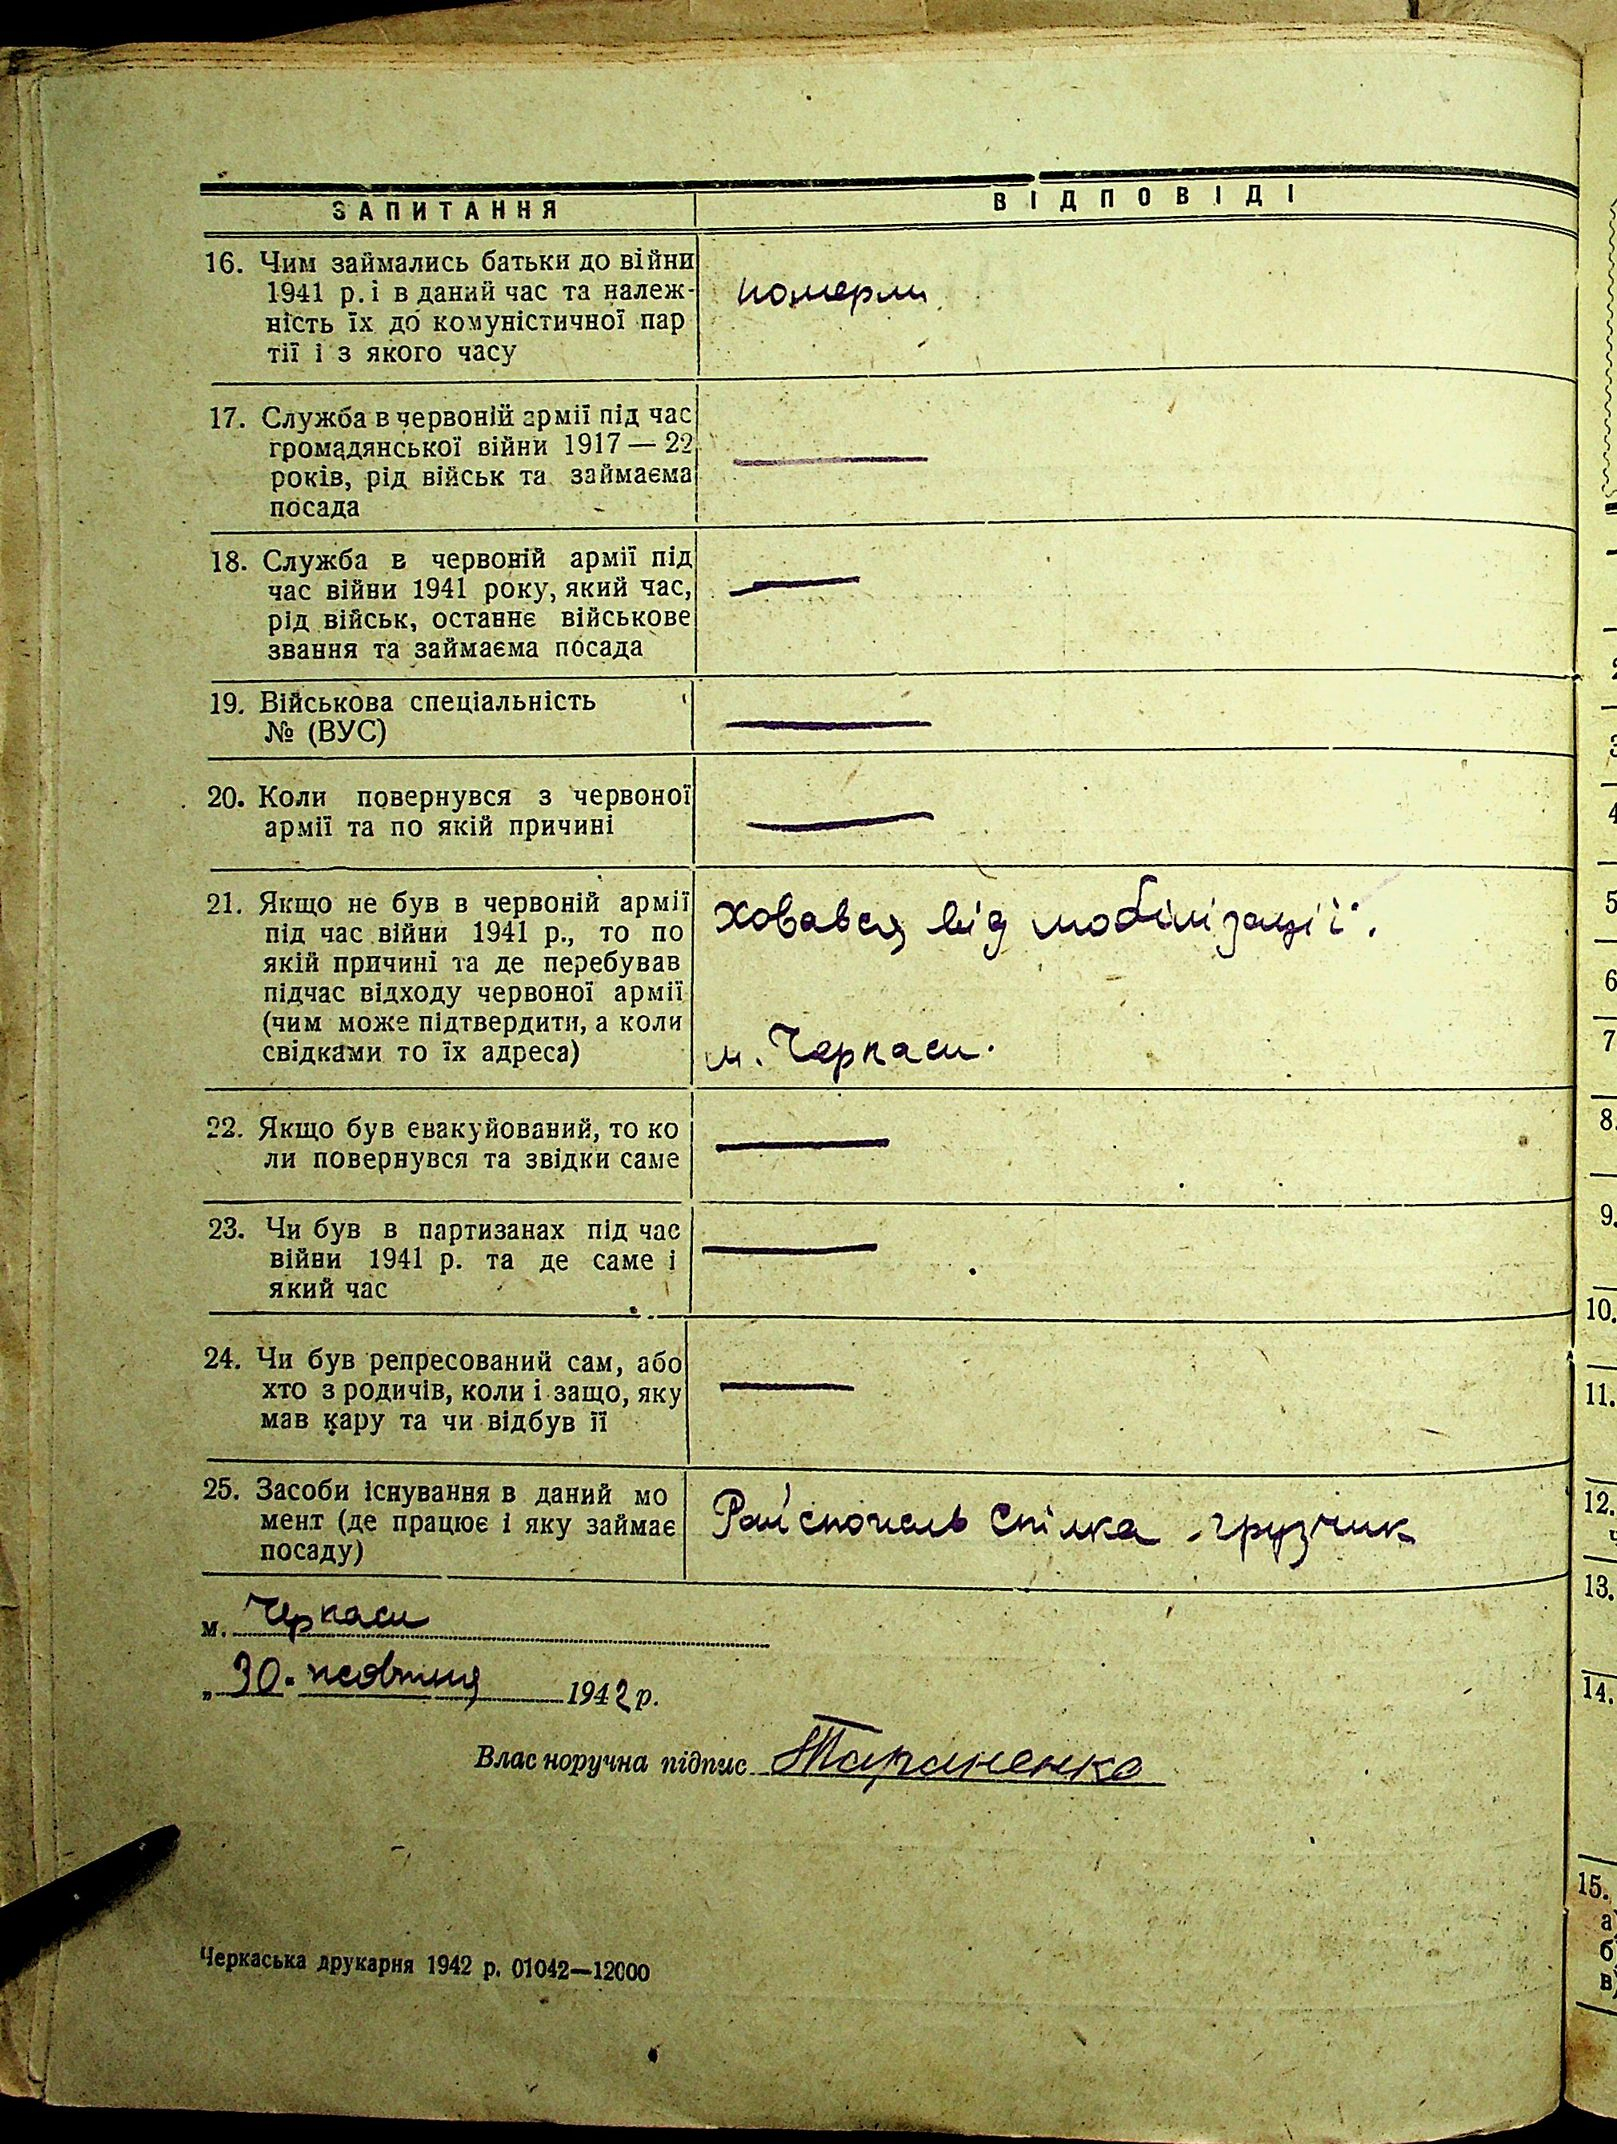 ЗАПИТАННЯ
ВІДПОВІДІ
16. Чим займались батьки до війни
1941 р. і в даний час та належ-
ність їх до комуністичної пар
тії і з якого часу
померли
17. Служба в червоній армії під час
громадянської війни 1917 — 22
років, рід військ та займаєма
посада
18. Служба в червоній армії під
час війни 1941 року, який час,
рід військ, останнє військове
звання та займаєма посада
19. Військова спеціальність
№ (ВУС)
20. Коли повернувся з червоної
армії та по якій причині
21. Якщо не був в червоній армії
під час війни 1941 р., то по
якій причині та де перебував
підчас відходу червоної армії
(чим може підтвердити, а коли
свідками то їх адреса)
Ховався від мобілізації.
м. Черкаси.
22. Якщо був евакуйований, то ко
ли повернувся та звідки саме
23. Чи був в партизанах під час
війни 1941 р. та де саме і
який час
24. Чи був репресований сам, або
хто з родичів, коли і защо, яку
мав кару та чи відбув її
25. Засоби існування в даний мо
мент (де працює і яку займає
посаду)
Спілка - грузчик
м. Черкаси
„30. жовтня 1942 р.
Власноручна підпис Тараненко
Черкаська друкарня 1942 р. 01042—12000
2
3
4
5
6
7
8.
9.
10.
11.
12.
13.
14.
15.
а
б
в)